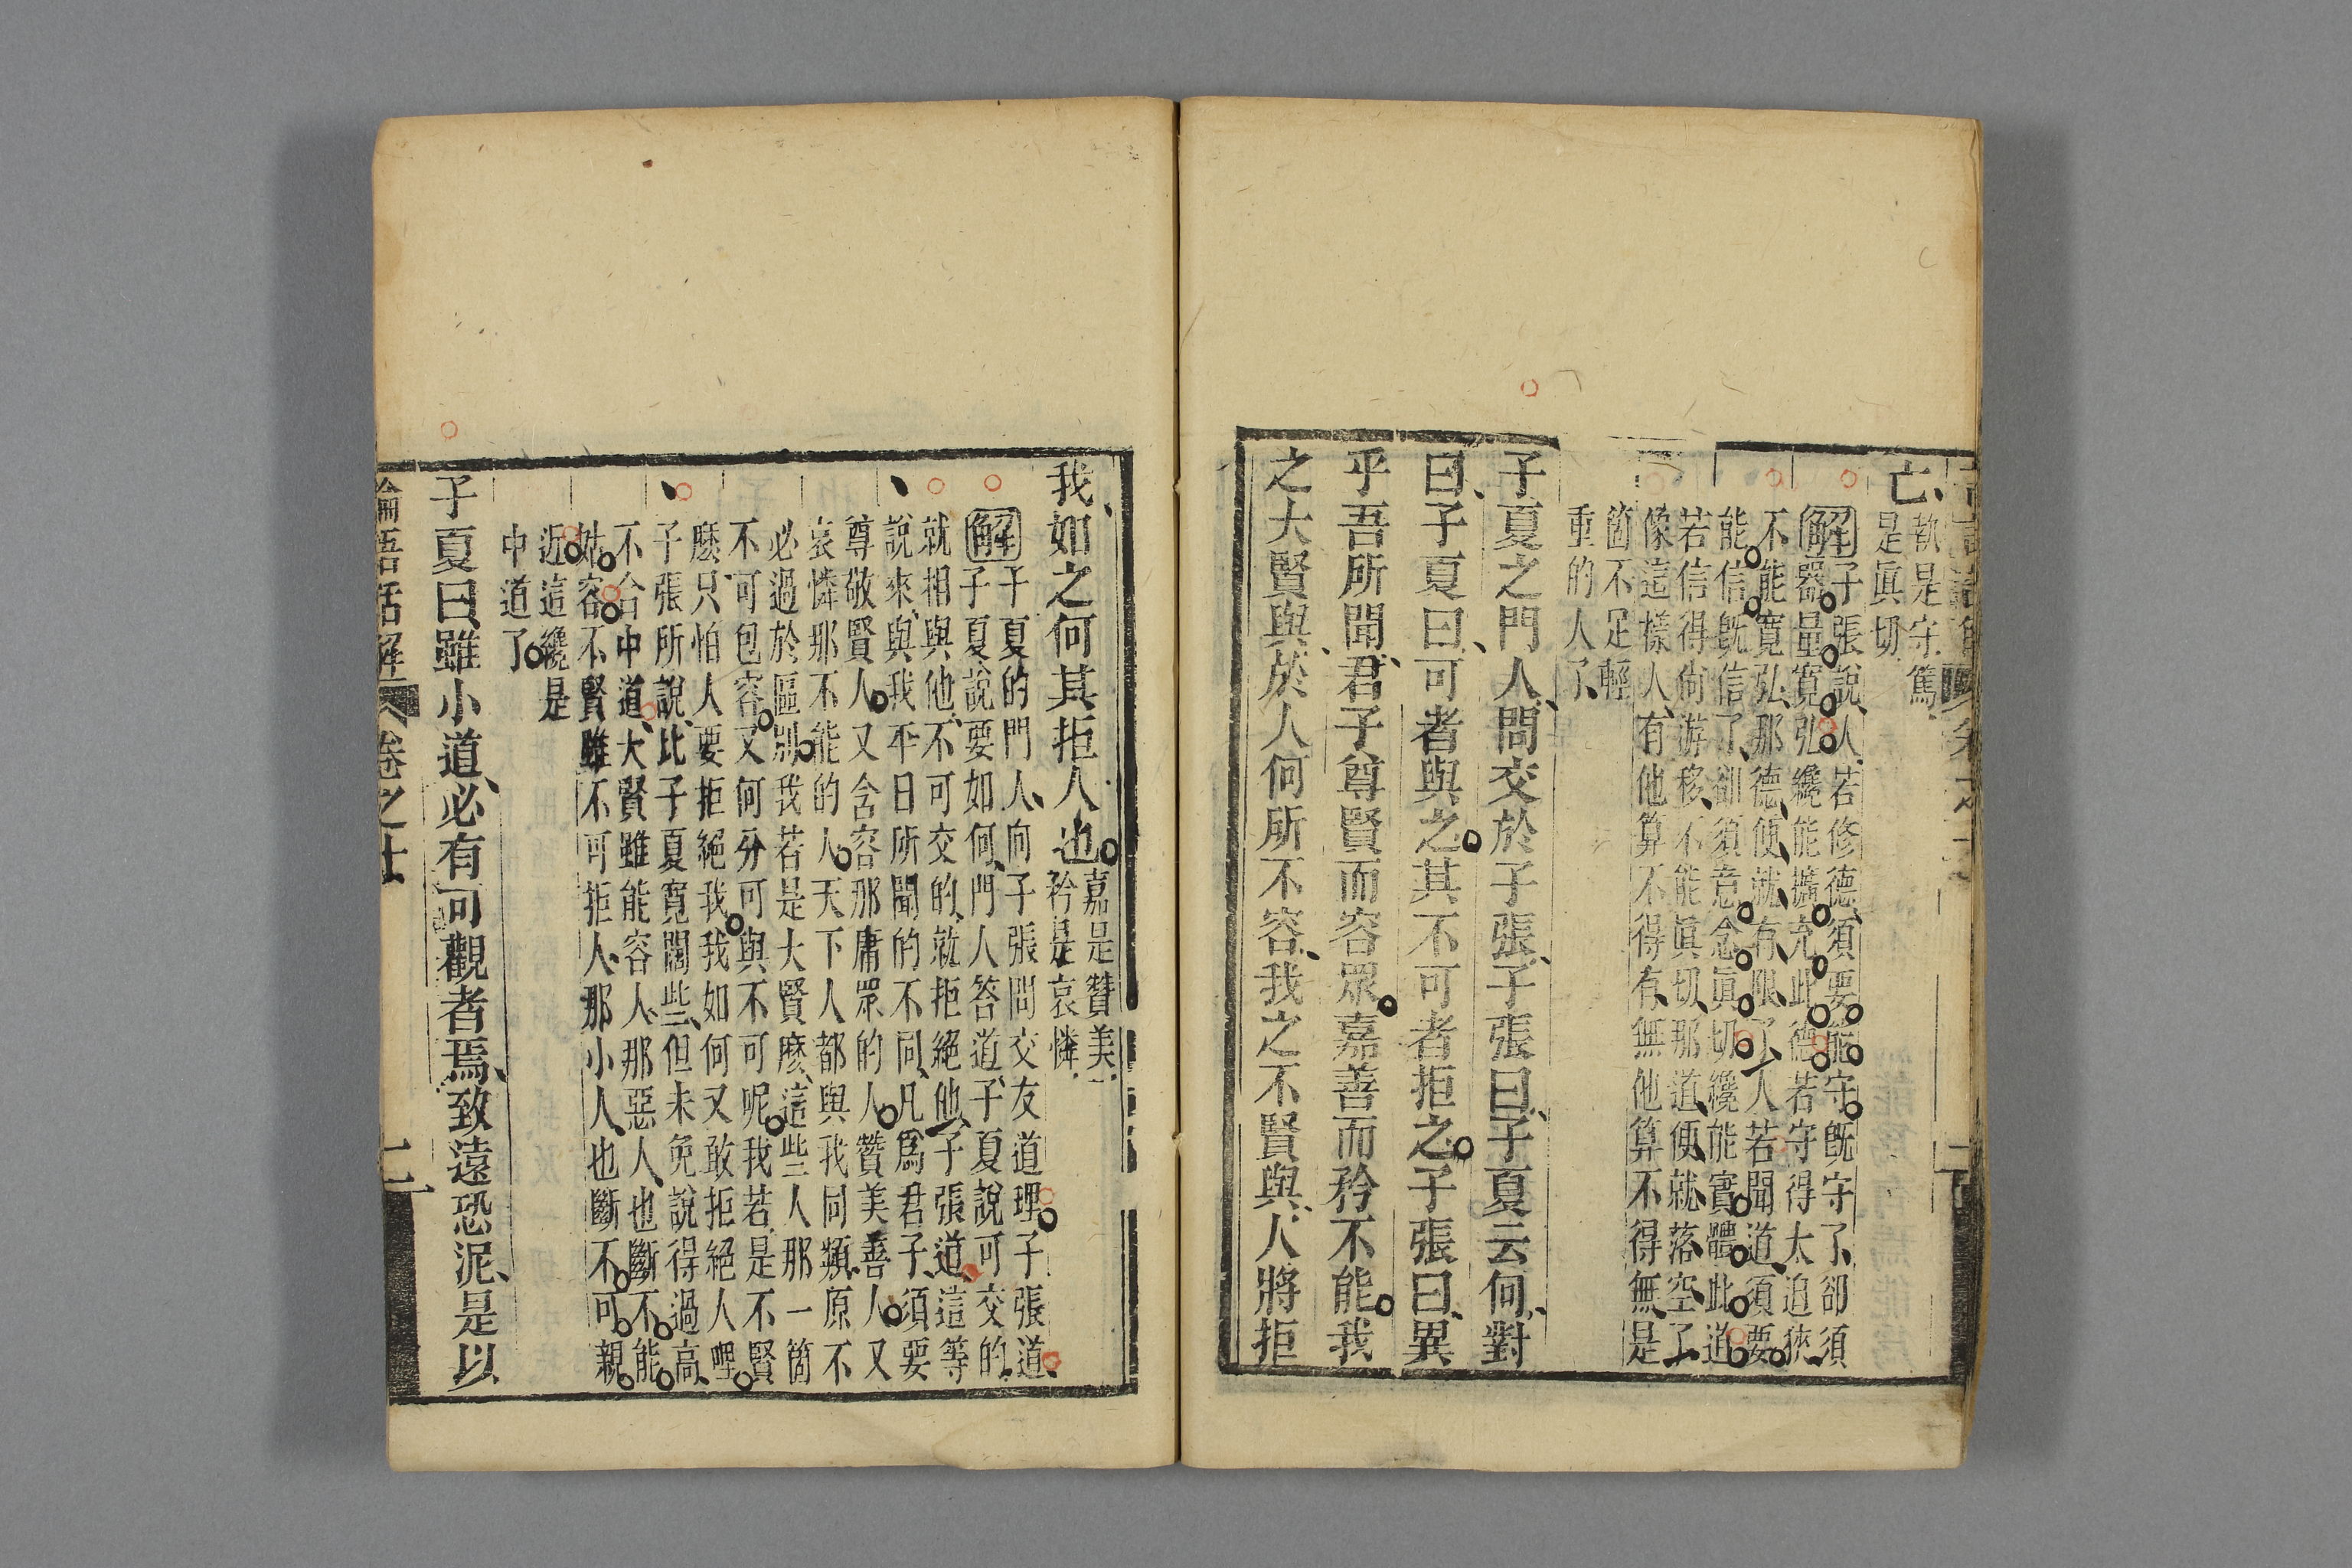 亡、
執是守、篤
是眞切
解子張說、人若修德、須要能守、旣守了、卻須
器量寬弘、纔能擴充此德、若守得太迫狹
不能寬弘、那德便就有限了、人若聞道、須要
能信、旣信了、卻須意念眞切、纔能實體此道
若信得尙游移、不能眞切、那道便就落空了
像這樣人、有他算不得有、無他算不得無、是
箇不足輕
重的人了、
子夏之門人、問交於子張、子張曰、子夏云何、對
曰、子夏曰、可者與之、其不可者拒之、子張曰、異
乎吾所聞、君子尊賢而容眾、嘉善而矜不能、我
之大賢與、於人何所不容、我之不賢與、人將拒
我、如之何其拒人也、
嘉是贊美、
矜是哀憐、
解子夏的門人、向子張問交友道理、子張道、
子夏說要如何、門人答道、子夏說可交的、
就相與他、不可交的、就拒絕他、子張道、這等
說來、與我平日所聞的不同、凡爲君子、須要
尊敬賢人、又含容那庸眾的人、贊美善人、又
哀憐那不能的人、天下人都與我同類、原不
必過於區別、我若是大賢麽、這些人那一箇
不可包容、又何分可與不可呢、我若是不賢
麽、只怕人要拒絕我、我如何又敢拒絕人哩、
子張所說、比子夏寬闊些、但未免說得過高、
不合中道、大賢雖能容人、那惡人也斷不能
姑容、不賢雖不可拒人、那小人也斷不可親
近、這纔是
中道了、
子夏曰、雖小道、必有可觀者焉、致遠恐泥、是以
論語話解 卷之十
二